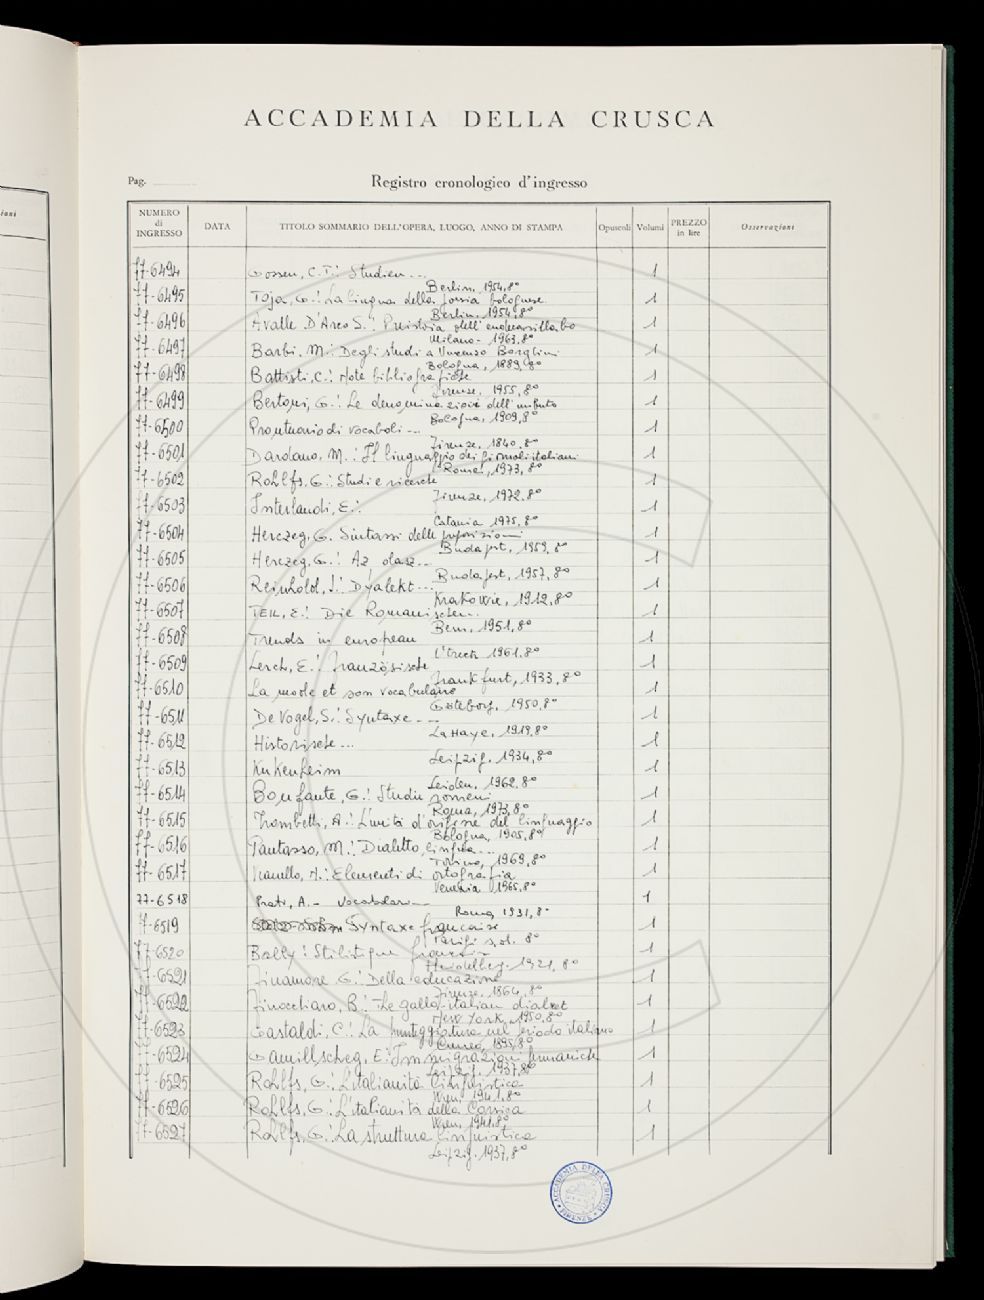 ioni
ACCADEMIA DELLA CRUSCA
Pag.
Registro cronologico d'ingresso
NUMERO di INGRESSO DATA TITOLO SOMMARIO DELL'OPERA, LUOGO, ANNO DI STAMPA Opuscoli Volumi PREZZO in lire Osservazioni
77-6494 Gossen, C.T.: Studien... 1
Berlin, 1954, 8°
77-6495 Toja, G.: La lingua della poesia bolognese 1
Berlin, 1954, 8°
77-6496 Avalle D'Arco S.: Preistoria dell'endecasillabo 1
Milano - 1963, 8°
77-6497 Barbi, M.: Degli studi a Vincenzo Borghini 1
Bologna, 1889, 8°
77-6498 Battisti, C.: Note bibliografiche 1
Firenze, 1955, 8°
77-6499 Bertoni, G.: Le denominazioni dell'imbuto 1
Bologna, 1909, 8°
77-6500 Prontuario di vocaboli... 1
Firenze, 1840, 8°
77-6501 Dardano, M.: Il linguaggio dei giornali italiani 1
Roma, 1973, 8°
77-6502 Rohlfs, G.: Studi e ricerche 1
Firenze, 1972, 8°
77-6503 Interlandi, E.: 1
Catania 1975, 8°
77-6504 Herczeg, G. Sintassi delle proposizioni 1
Budapest, 1959, 8°
77-6505 Herczeg, G.: Az olasz... 1
Budapest, 1957, 8°
77-6506 Reinhold, J.: Dyalekt... 1
Krakowie, 1912, 8°
77-6507 E.: Die Romanischen... 1
Bern, 1951, 8°
77-6508 Trends in european 1
Utrech 1961, 8°
77-6509 Lerch, E.: Französische 1
Frankfurt, 1933, 8°
77-6510 La mode et son vocabulaire 1
Göteborg, 1950, 8°
77-6511 De Vogel, S.: Syntaxe... 1
La Haye, 1919, 8°
77-6512 Historische... 1
Leipzig, 1934, 8°
77-6513 Kukenheim 1
Leiden, 1962, 8°
77-6514 Bonfante, G.: Studii romeni 1
Roma, 1973, 8°
77-6515 Trombetti, A.: L'unità d'origine del linguaggio 1
Bologna, 1905, 8°
77-6516 Pautasso, M.: Dialetto, lingua... 1
Torino, 1969, 8°
77-6517 Vianello, N.: Elementi di ortografia 1
Venezia 1965, 8°
77-6518 Prati, A. - Vocabolario - 1
Roma, 1931, 8°
77-6519 Syntaxe française 1
Parigi s.d. 8°
77-6520 Bally: Stilistique française 1
Heidelberg. 1921, 8°
77-6521 Finamore, G.: Della educazione 1
Firenze, 1864, 8°
77-6522 Finocchiaro, B.: The gallo-italian dialect 1
New York, 1950, 8°
77-6523 Gastaldi, C.: La punteggiatura nel periodo italiano 1
Cuneo, 1895, 8°
77-6524 Gamillscheg, E.: Immigrazioni germaniche 1
Leipzig, 1937, 8°
77-6525 Rohlfs, G.: L'italianità linguistica 1
Wien, 1941, 8°
77-6526 Rohlfs, G.: L'italianità della Corsica 1
Wien, 1941, 8°
77-6527 Rohlfs, G.: La struttura linguistica 1
Leipzig, 1937, 8°
ACCADEMIA DELLA CRUSCA
FIRENZE